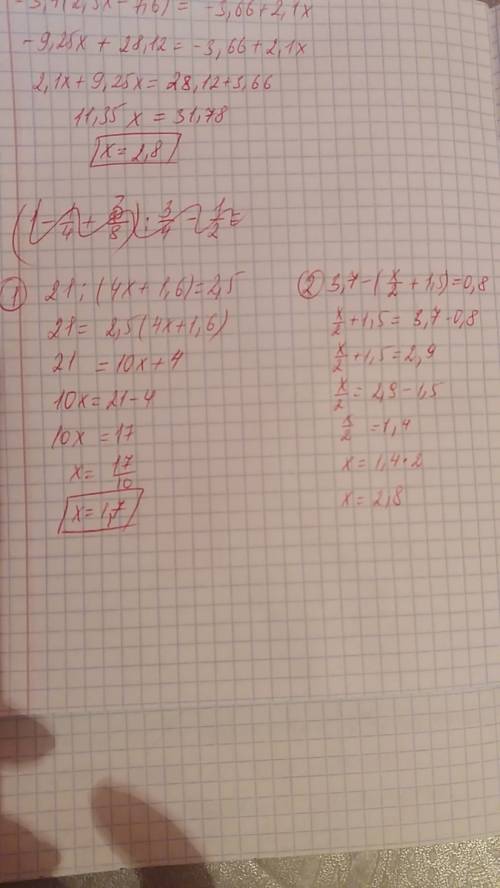 -3,7(2,5x-7,6) = -3,66+2,1x
-9,25x + 28,12 = -3,66+2,1x
2,1x+9,25x = 28,12+3,66
11,35x = 31,78
x = 2,8
(1-1/4+3/8):3/4-1/2=
① 21:(4x+1,6)=2,5
21= 2,5(4x+1,6)
21 =10x+4
10x=21-4
10x =17
x= 17/10
x=1,7
② 3,7-(x/2+1,5)=0,8
x/2+1,5= 3,7-0,8
x/2+1,5=2,9
x/2= 2,9-1,5
x/2 =1,4
x=1,4·2
x=2,8